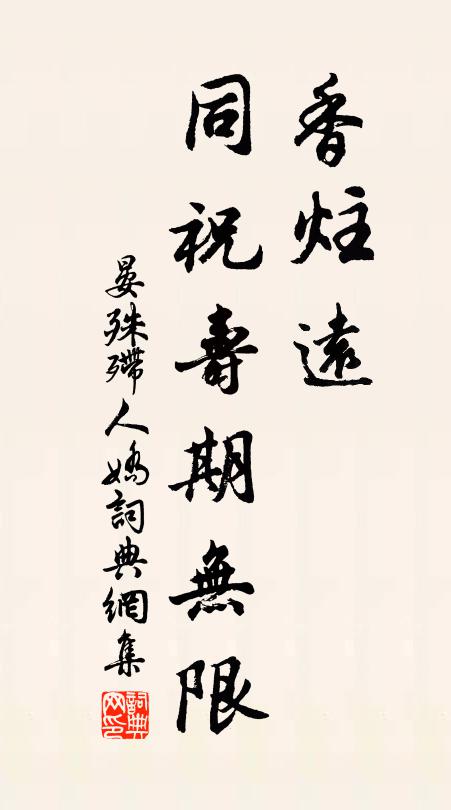 香炷遠
同祝壽期無限
晏殊殢人嬌詞典網集
詞典網印